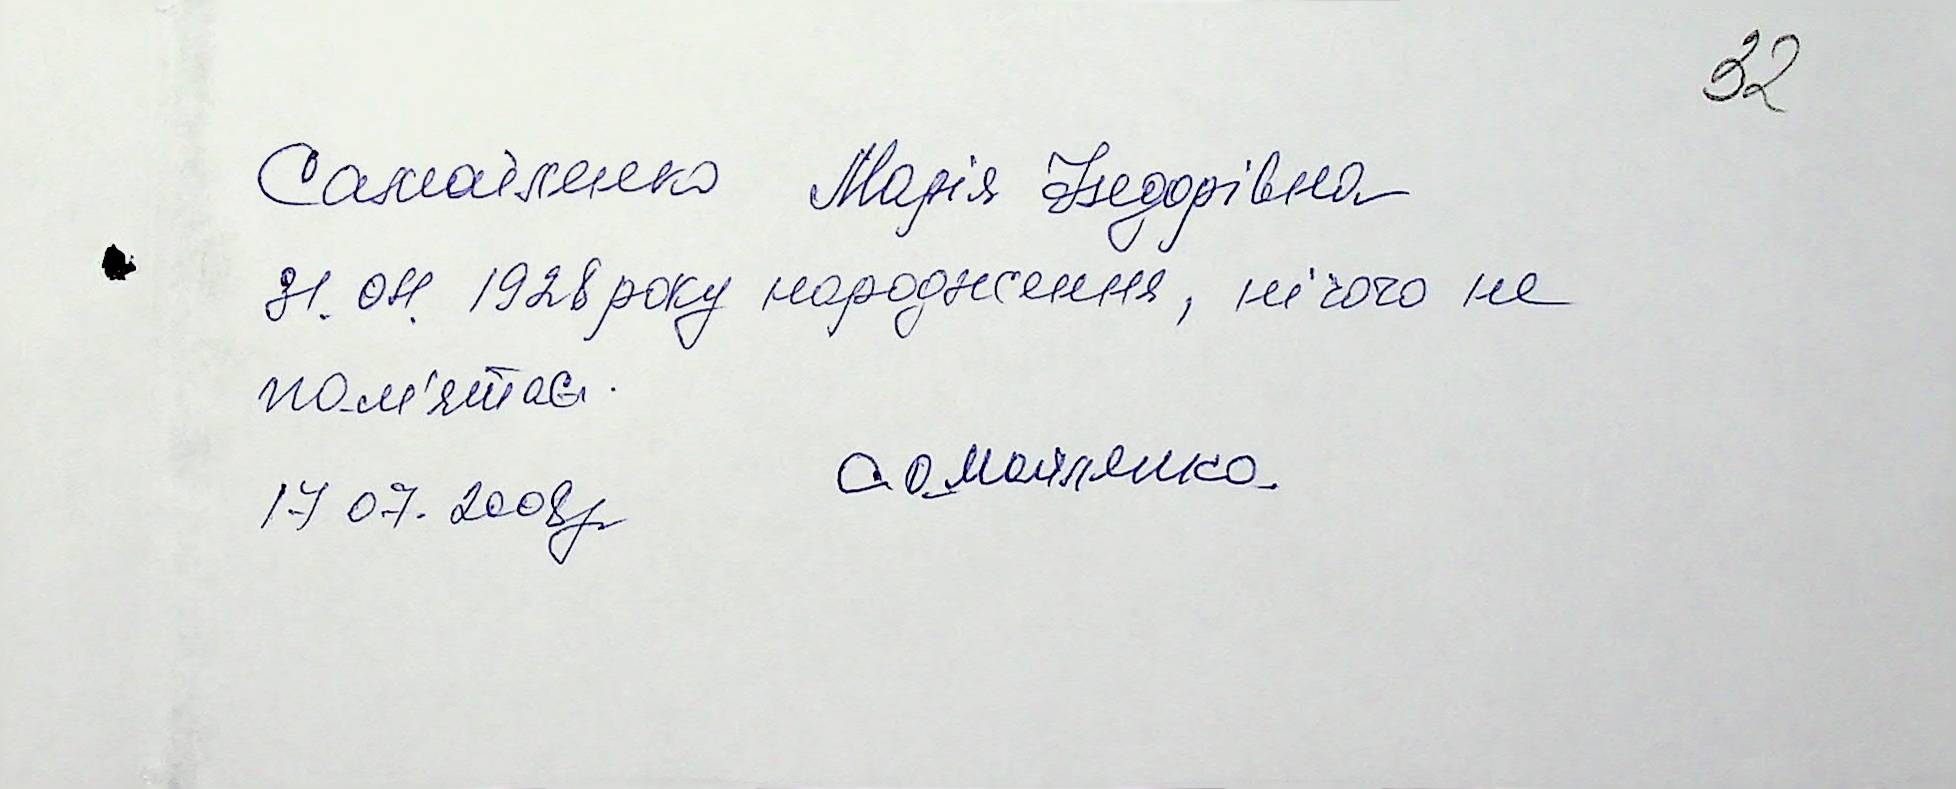 32
Самойленко Марія Федорівна
31.01. 1928 року народження, нічого не
пам'ятає.
17 07. 2008р
Самойленко